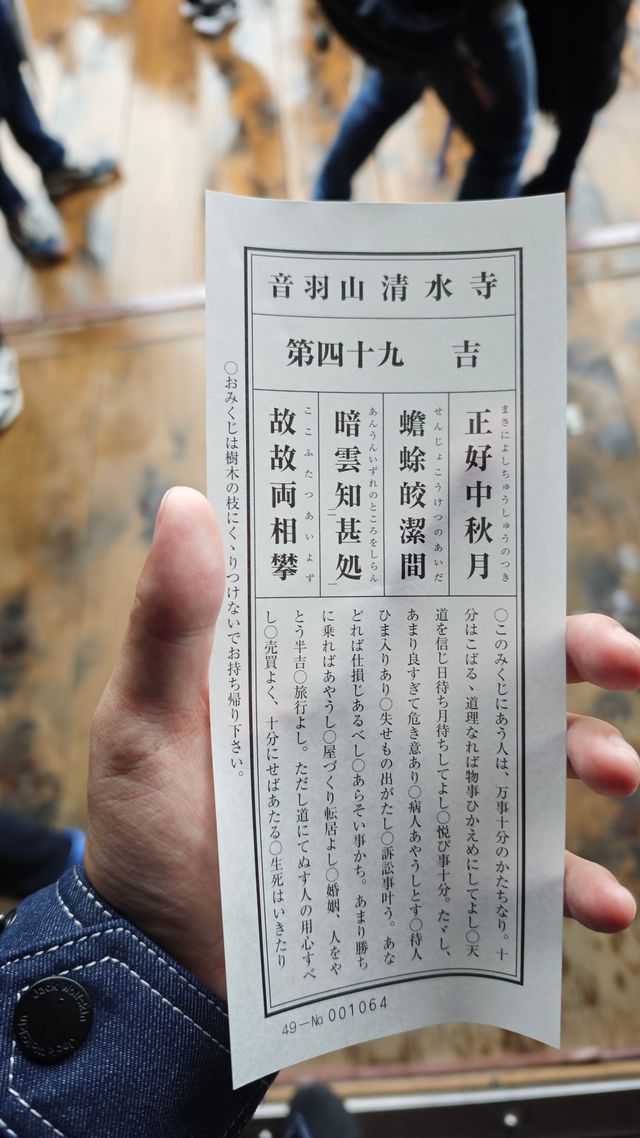 音羽山清水寺
第四十九 吉
まさによしちゅうしゅうのつき
正好中秋月
せんじょこうけつのあいだ
蟾蜍皎潔間
あんうんいずれのところをしらん
暗雲知二甚処一
ここふたつあいよず
故故両相攀
〇このみくじにあう人は、万事十分のかたちなり。十
分はこばるゝ道理なれば物事ひかえめにしてよし〇天
道を信じ日待ち月待ちしてよし〇悦び事十分。たゞし、
あまり良すぎて危き意あり〇病人あやうしとす〇待人
ひま入りあり〇失せもの出がたし〇訴訟事叶う。あな
どれば仕損じあるべし〇あらそい事かち。あまり勝ち
に乗ればあやうし〇屋づくり転居よし〇婚姻、人をや
とう半吉〇旅行よし。ただし道にてぬす人の用心すべ
し〇売買よく、十分にせばあたる〇生死はいきたり
〇おみくじは樹木の枝にくゝりつけないでお持ち帰り下さい。
49－No.001064
Jack Wolfskin